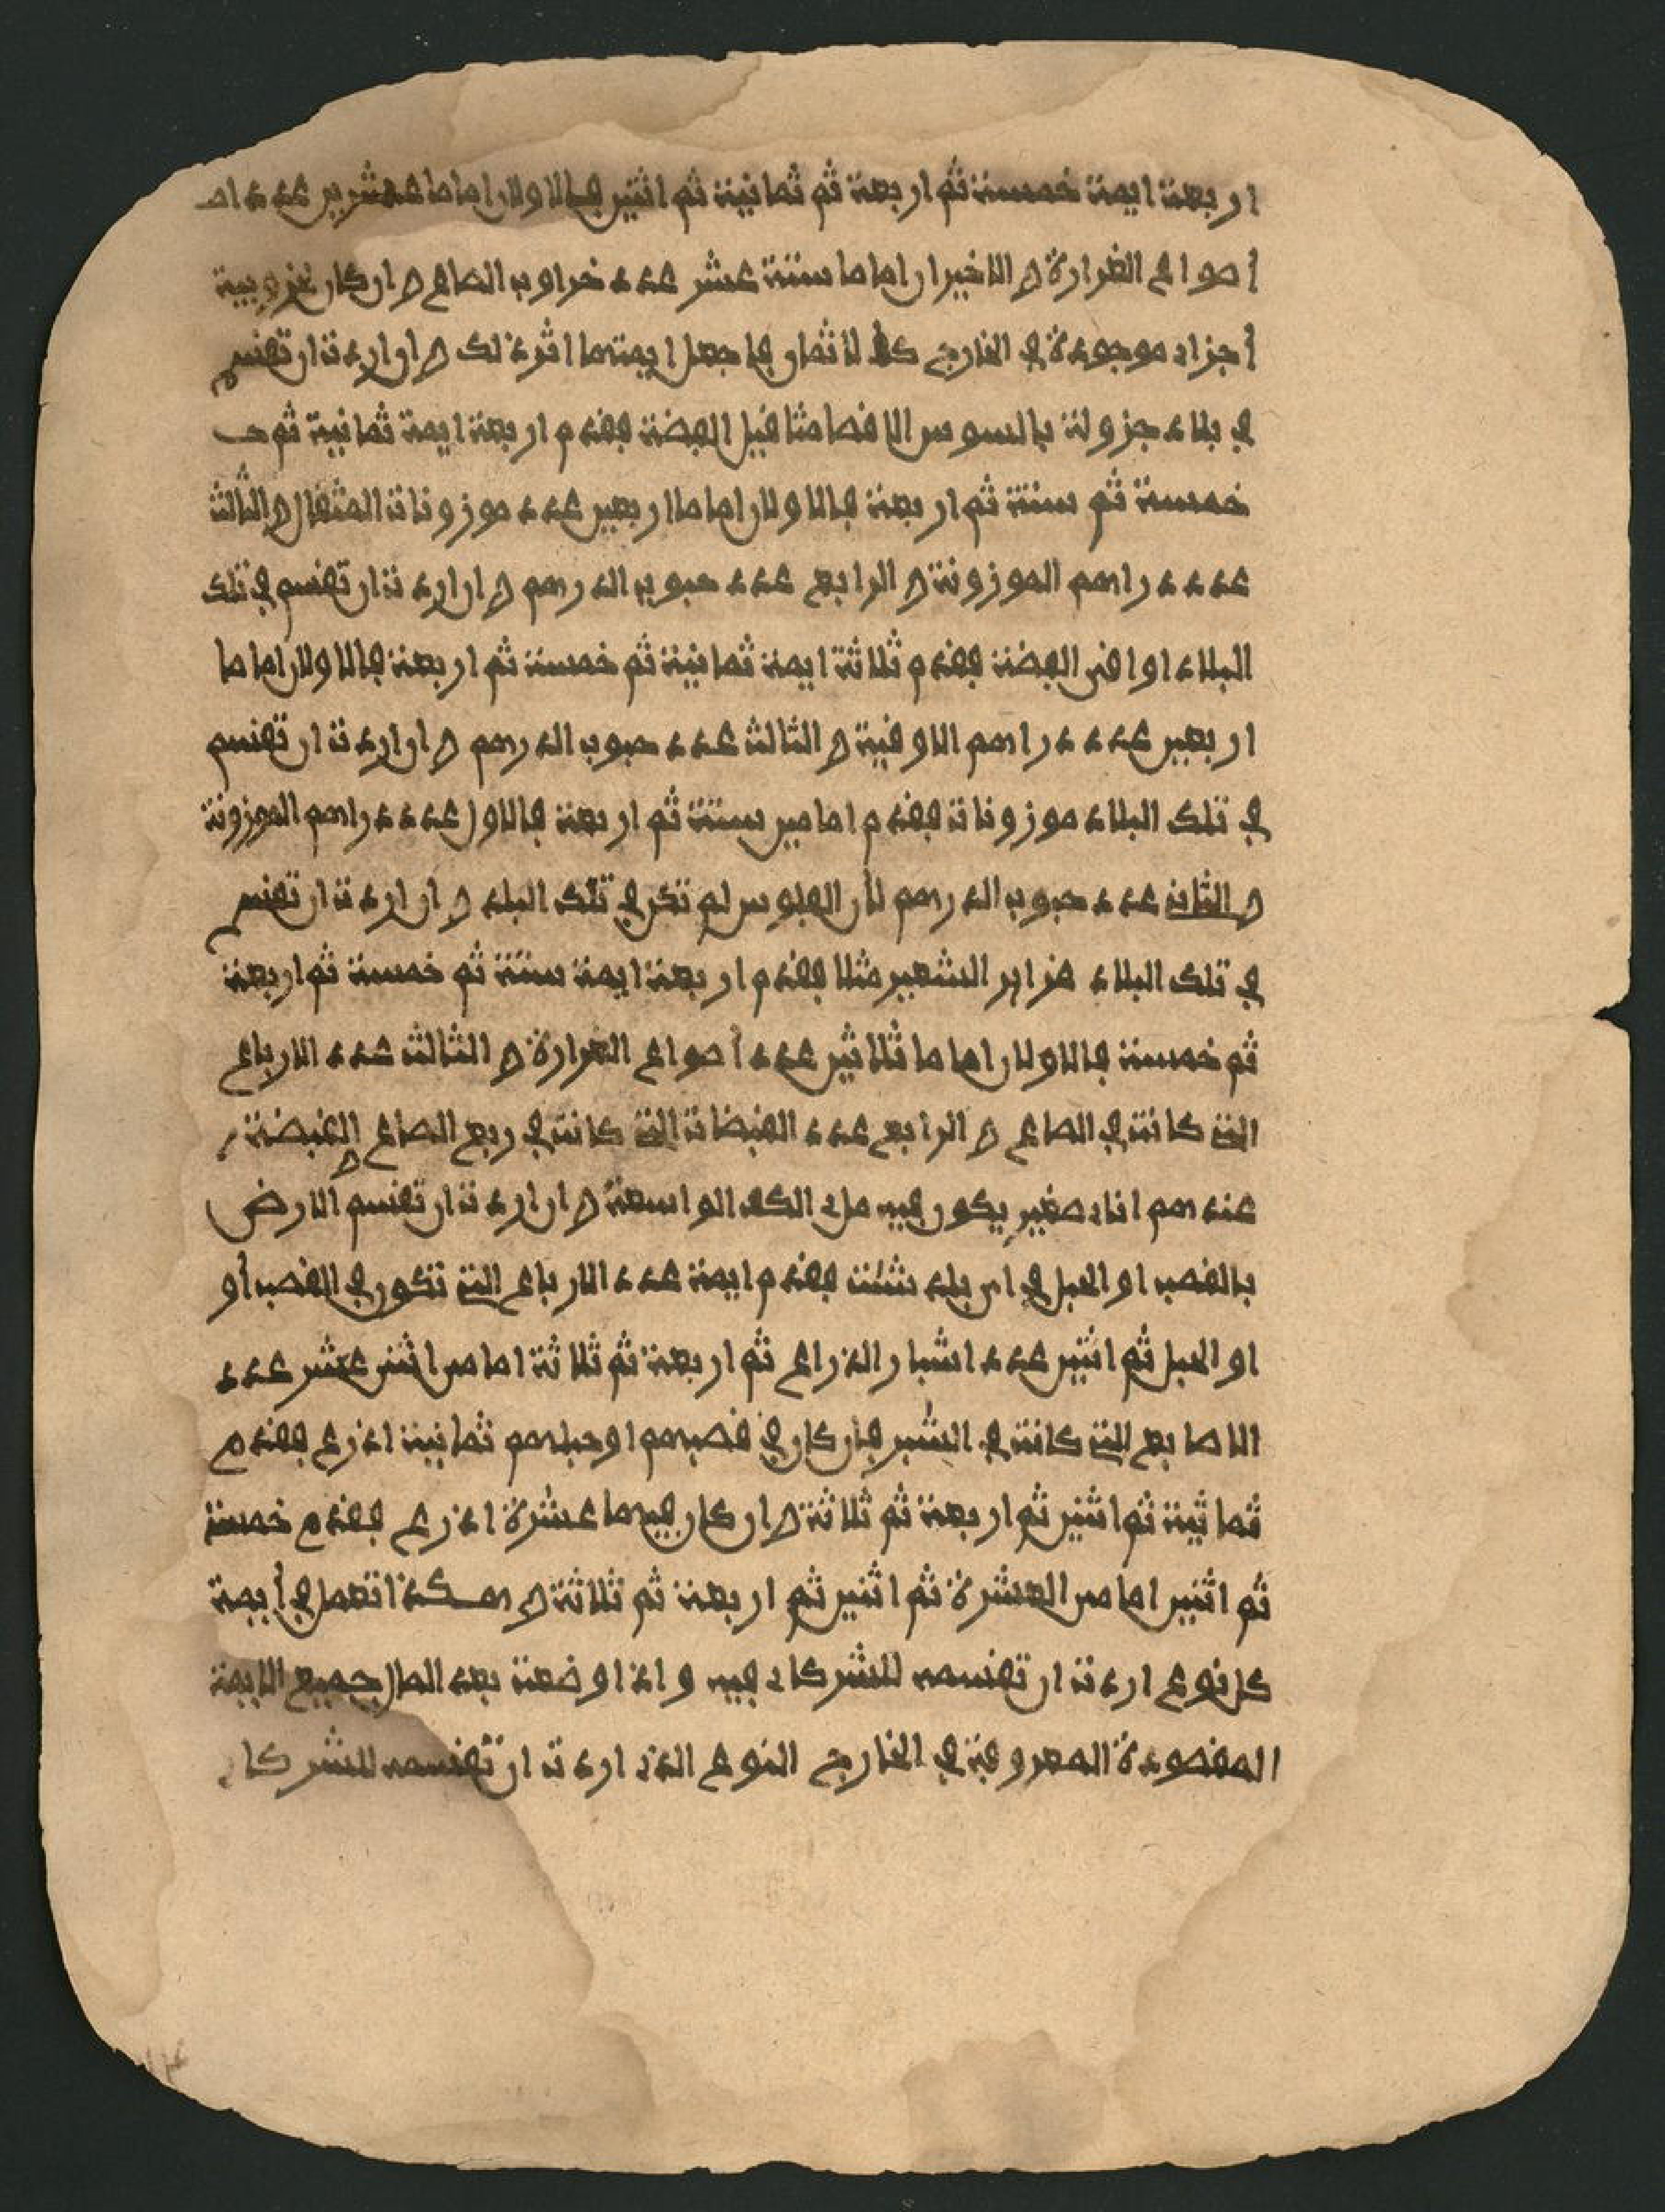 اربعة ايمة خمسة ثم اربعة ثم ثمانية ثم اثنين فالاولان اماما عشرين عدد
أصواع الغرارة والاخيران اماما ستة عشر عدد خراوب الصاع وان كان
أجزاء موجودة في الخارج كالاثمان فاجعل ايمتها اثر ذلك وان اردت ان تقسم
في بلاد جزولة بالسوس الاقصا مثاقيل الفضة فقدم اربعة ايمة ثمانية ثم
خمسة ثم ستة ثم اربعة فالاولان اماما اربعين عدد موزونات المثقال والثالث
عدد دراهم الموزونة والرابع عدد حبوب الدرهم وان اردت ان تقسم في تلك
البلاد اواقي الفضة فقدم ثلاثة ايمة ثمانية ثم خمسة ثم اربعة فالاولان اماما
اربعين عدد دراهم الاوقية والثالث عدد حبوب الدرهم وان اردت ان تقسم
في تلك البلاد موزونات فقدم امامين ستة ثم اربعة فالاول عدد دراهم الموزونة
والثاني عدد حبوب الدرهم لأن الفلوس لم تكن في تلك البلد وان اردت ان تقسم
في تلك البلاد غراير الشعير مثلا فقدم اربعة ايمة ستة ثم خمسة ثم اربعة
ثم خمسة فالاولان اماما ثلاثين عدد أصواع الغرارة والثالث عدد الارباع
التي كانت في الصاع والرابع عدد القبضات التي كانت في ربع الصاع والقبضة
عندهم اناء صغير يكون فيه ملء الكف الواسعة وان اردت ان تقسم الارض
بالقصب او الحبل في اي بلد شئت فقدم ايمة عدد الارباع التي تكون في القصب أو
او الحبل ثم اثنين عدد اشبار الذراع ثم اربعة ثم ثلاثة امامي اثني عشر عدد
الاصابع التي كانت في الشبر فإن كان في قصبهم او حبلهم ثمانية اذرع فقدم
ثمانية ثم اثنين ثم اربعة ثم ثلاثة وان كان فيهما عشرة اذرع فقدم خمسة
ثم اثنين امامي العشرة ثم اثنين ثم اربعة ثم ثلاثة وهكذا تفعل في أيمة
كل نوع اردت ان تقسمه للشركاء فيه واذا وضعت بعد المال جميع الايمة
المقصودة المعروفة في الخارج النوع الذي اردت ان تقسمه للشركاء